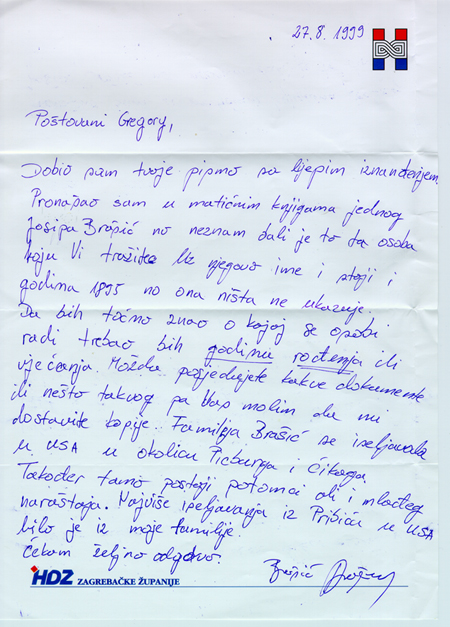 27.8.1999
Poštovani Gregory,
Dobio sam tvoje pismo sa lijepim iznenađenjem
Pronašao sam u matičnim knjigama jednog
Josipa Brašić no neznam dali je to ta osoba
koju Vi tražite Uz njegovo ime i stoji i
godina 1895 no ona ništa ne ukazuje.
Da bih točno znao o kojoj se osobi
radi trebao bih godinu rođenja ili
vjećanja. Možda posjedujete kakve dokumente
ili nešto takvog pa Vas molim da mi
dostavite kopije. Familija Brašić se iseljavala
u USA u okolicu Picburga i Čikaga
Također tamo postoji potomci ali i mlađeg
naraštaja. Najviše iseljavanja iz Pribića u USA
bilo je iz moje familije.
čekam željno odgovo.
Brašić
HDZ ZAGREBAČKE ŽUPANIJE